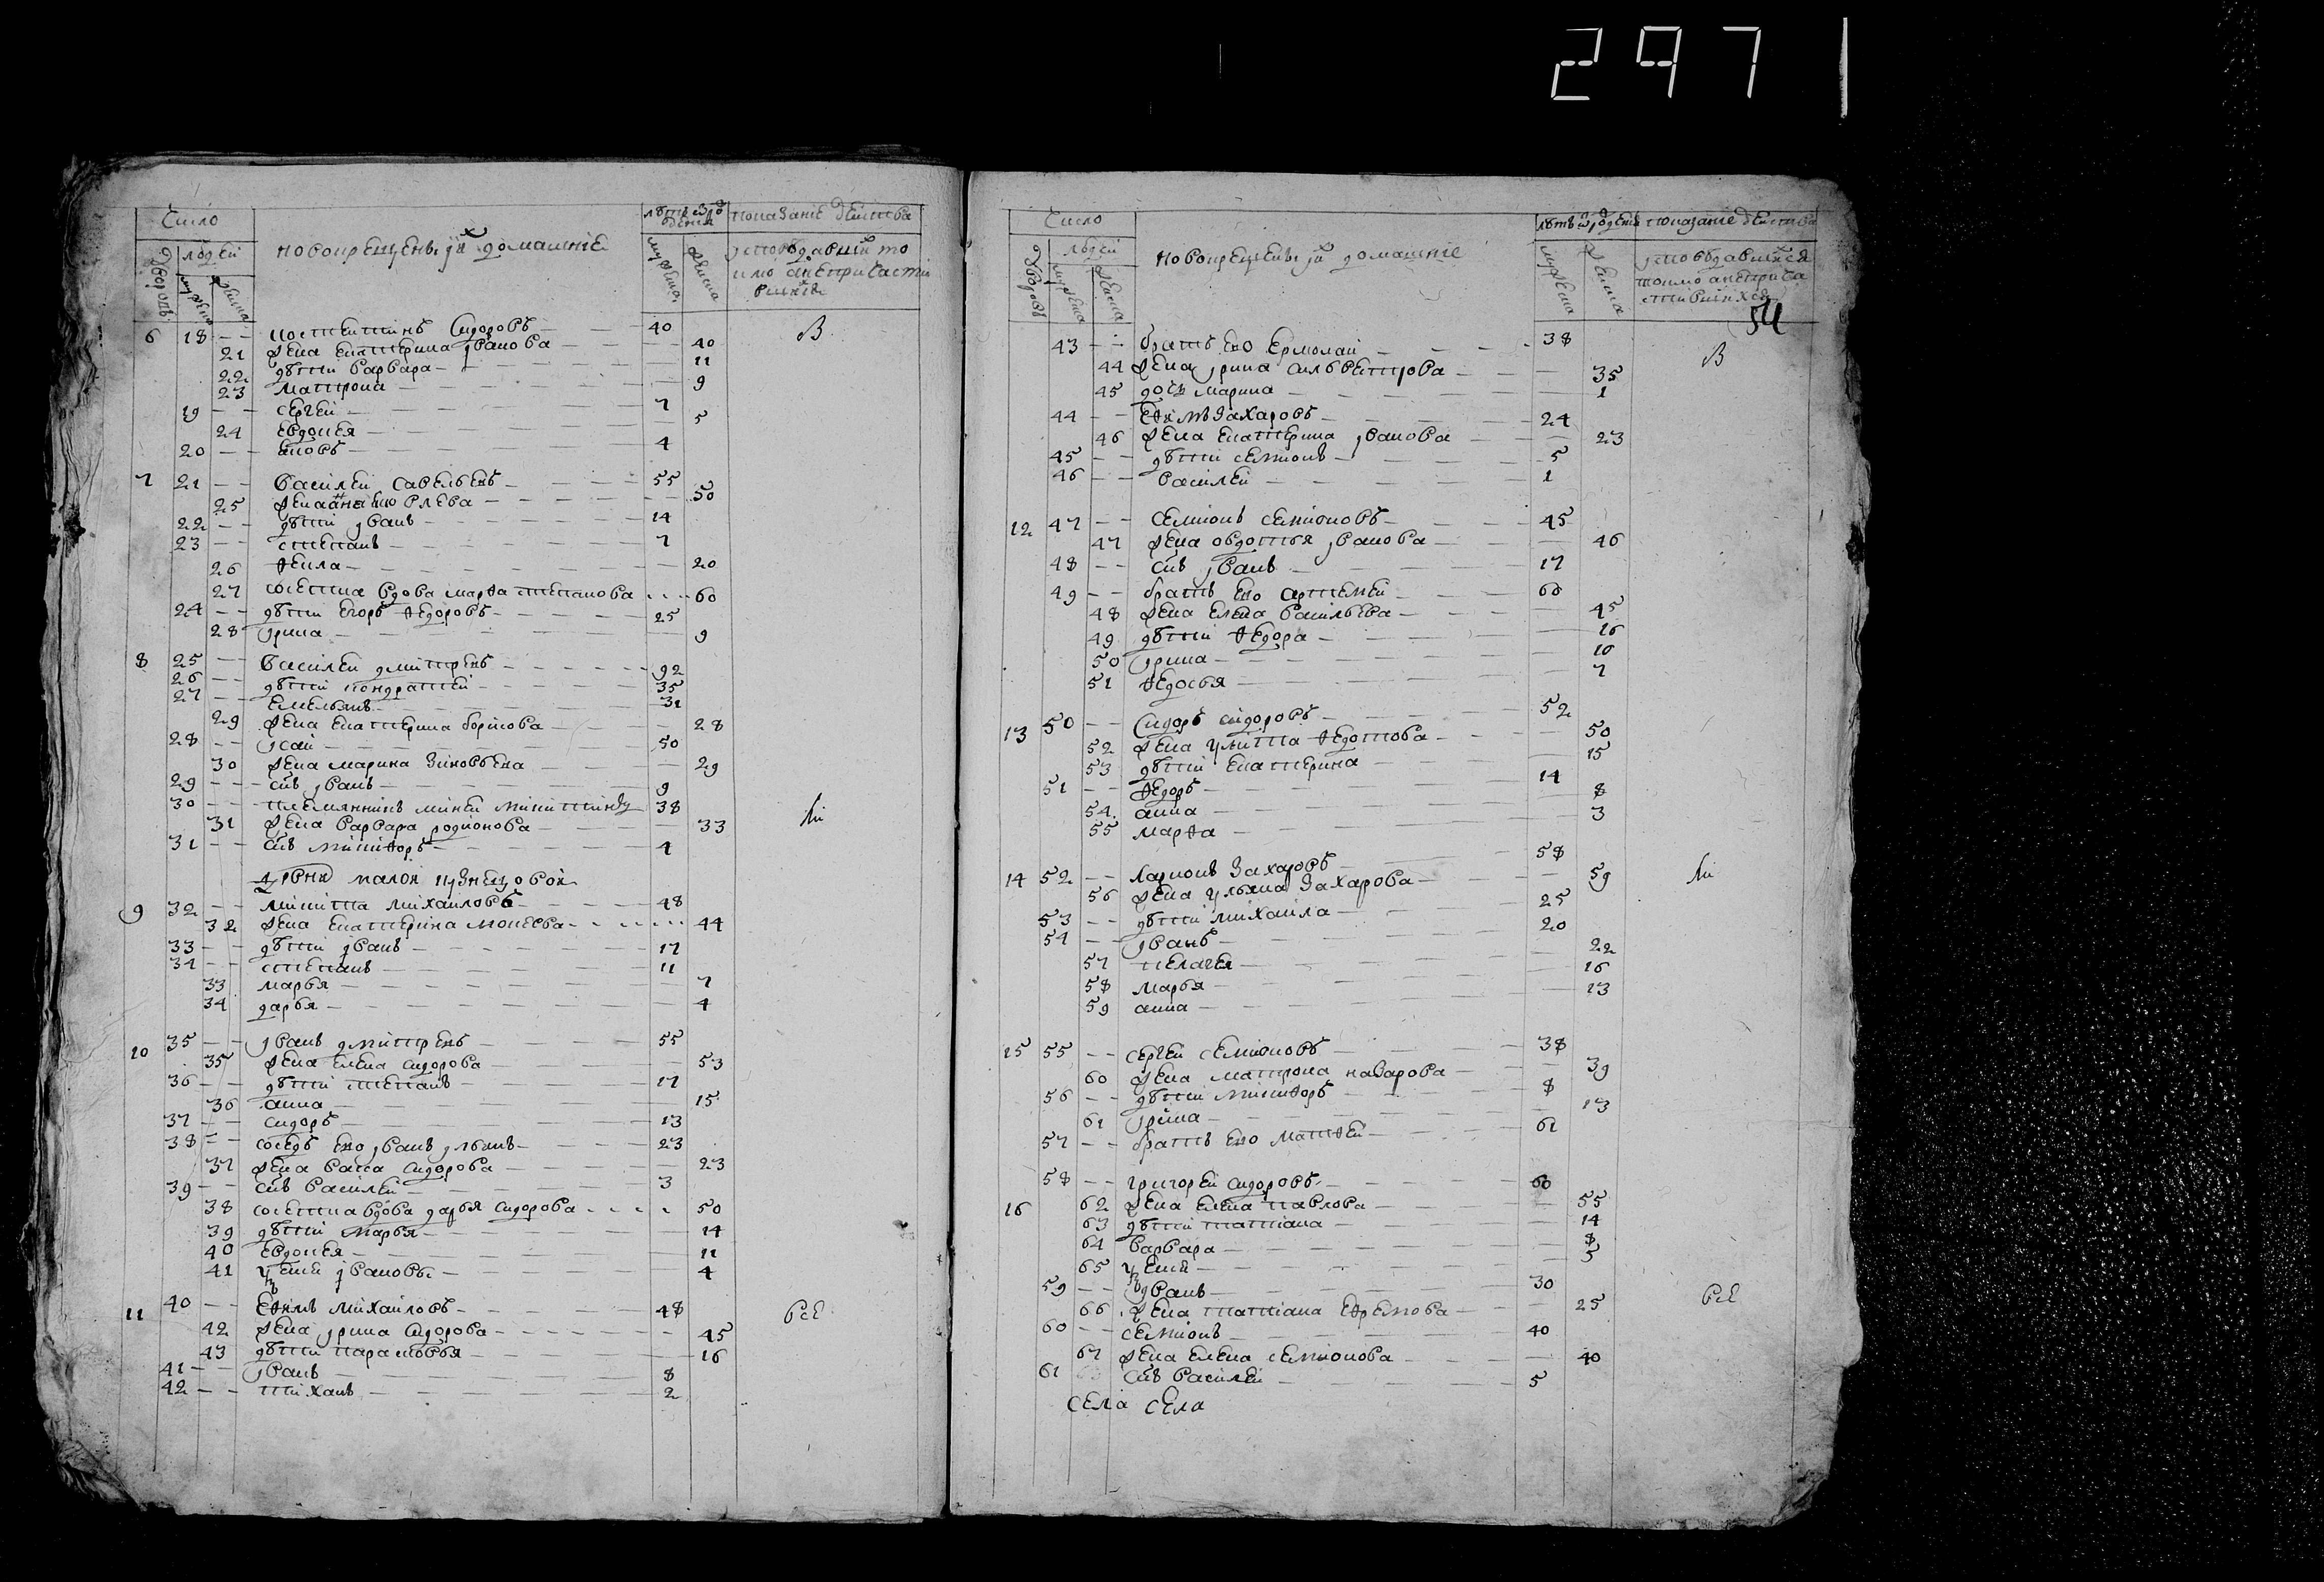 2971
число
лѣтъ ѿ рождения
показание действа
дворовъ
людей
мужеска
женска
новокрещены и их домашние
мужеска
женска
исповедавшихся токмо а не причастившихся
6 18 -- костентинъ сидоровъ 40 В
21 жена екатерина иванова 40
22 дѣти варвара 11
23 матрона 9
19 -- сергеи 7
24 евдокея 5
20 -- яковъ 4
7 21 -- василеи савельевъ 55
25 жена анна яковлева 50
22 -- дѣти иванъ 14
23 -- степанъ 7
26 ѳекла 20
27 соседка вдова марѳа степанова 60
24 -- дѣти егоръ ѳедоровъ 25
28 ирина 9
8 25 -- василеи дмитревъ 92
26 -- дѣти кондратеи 35
27 -- емельянъ 31
29 жена екатерина борисова 28
28 -- исаи 50
30 жена марина зиновьева 29
29 -- снъ иванъ 9
30 -- племянникъ микеи никитинъ 38
31 жена варвара родионова 33
31 -- снъ никиѳоръ 4
дрвни малои кузнецовои
9 32 -- никита михаиловъ 48
32 жена екатерина мокеева 44
33 -- дѣти иванъ 17
34 -- степанъ 11
33 марья 7
34 дарья 4
10 35 -- иванъ дмитревъ 55
35 жена елена сидорова 53
36 -- дѣти степанъ 17
36 анна 15
37 -- сидоръ 13
38 -- соседъ ево иванъ ульянъ 23
37 жена васса сидорова 23
39 -- снъ василеи 3
38 соседка вдова дарья сидорова 50
39 дѣти марья 14
40 евдокея 11
41 ксения ивановы 4
11 40 -- еѳимъ михаиловъ 48 всѣ
42 жена ирина сидорова 45
43 дѣти парасковья 16
41 -- иванъ 8
42 -- тиханъ 2
число
лѣтъ ѿ рождения
показание действа
дворовъ
людей
мужеска
женска
новокрещены и их домашние
мужеска
женска
исповедавшихся токмо а не причастившихся
54
43 -- братъ ево ермолаи 38 В
44 жена ирина сильвестрова 35
45 дочь марина 1
44 -- еѳимъ захаровъ 24
46 жена екатерина иванова 23
45 -- дѣти семионъ 5
46 -- василеи 1
12 47 -- семионъ семионовъ 45
47 жена овдотья иванова 46
48 -- снъ иванъ 17
49 -- братъ ево артемеи 60
48 жена елена васильева 45
49 дѣти ѳедора 16
50 ирина 10
51 ѳедосья 7
13 50 -- сидоръ сидоровъ 52
52 жена улита ѳедотова 50
53 дѣти екатерина 15
51 -- ѳедоръ 14
54 анна 8
55 марѳа 3
14 52 -- ларионъ захаровъ 58
56 жена ульяна захарова 59
53 -- дѣти михаила 25
54 -- иванъ 20
57 пелагея 22
58 марья 16
59 анна 13
15 55 -- сергеи семионовъ 38
60 жена матрона назарова 39
56 -- дѣти никиѳоръ 8
61 ирина 13
57 -- братъ ево матѳеи 61
58 -- григореи сидоровъ 60
16 62 жена елена павлова 55
63 дѣти татиана 14
64 варвара 8
65 ксения 5
59 -- иванъ 30 всѣ
66 жена татиана еѳремова 25
60 -- семионъ 40
67 жена елена семионова 40
61 снъ василеи 5
села села